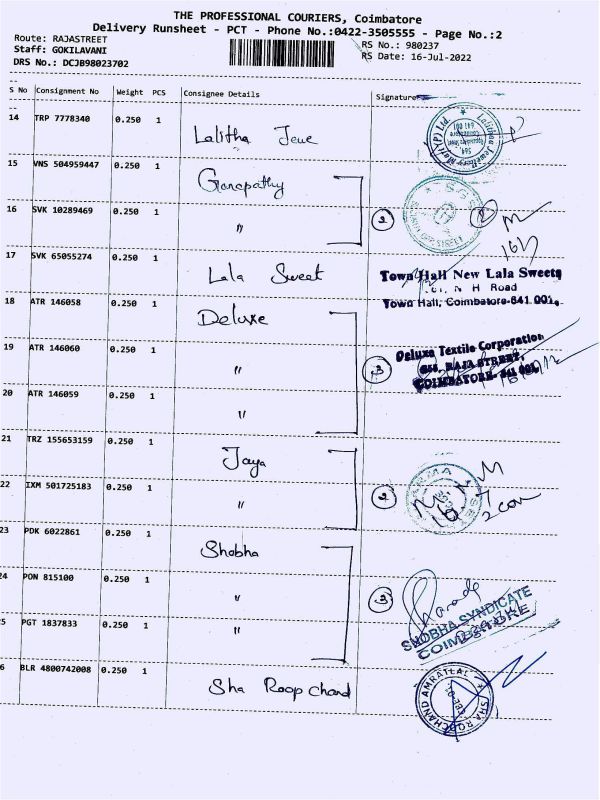 THE PROFESSIONAL COURIERS, Coimbatore
Delivery Runsheet - PCT - Phone No.:0422-3505555 - Page No.:2
Route: RAJASTREET
RS No.: 980237
Staff: GOKILAVANI
RS Date: 16-Jul-2022
DRS No.: DCJB98023702
S No Consignment No Weight PCS Consignee Details Signature
14 TRP 7778340 0.250 1 Lalitha Jewe
15 VNS 504959447 0.250 1 Ganapathy
16 SVK 10289469 0.250 1 " 2
17 SVK 65055274 0.250 1 Lala Sweet
Town Hall New Lala Sweets
N H Road
Town Hall, Coimbatore-641 001.
18 ATR 146058 0.250 1 Deluxe
19 ATR 146060 0.250 1 " 3
Deluxe Textile Corporation
RAJA STREET,
COIMBATORE- 641 001.
20 ATR 146059 0.250 1 "
21 TRZ 155653159 0.250 1 Jaya
22 IXM 501725183 0.250 1 " 2
2 cov
23 PDK 6022861 0.250 1 Shobha
24 PON 815100 0.250 1 " 3
SHOBHA SYNDICATE
COIMBATORE
25 PGT 1837833 0.250 1 "
26 BLR 4800742008 0.250 1 Sha Roop chand
SHA ROOPCHAND AMRATLAL